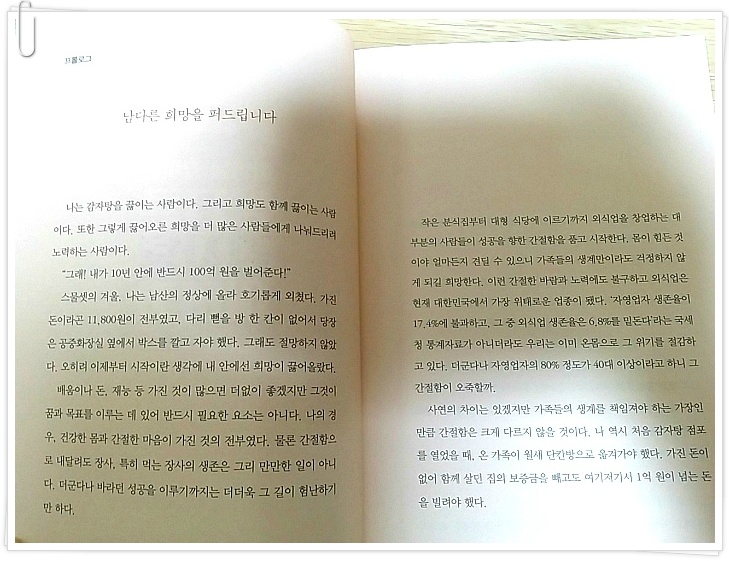 프롤로그
남다른 희망을 퍼드립니다
나는 감자탕을 끓이는 사람이다. 그리고 희망도 함께 끓이는 사람
이다. 또한 그렇게 끓어오른 희망을 더 많은 사람들에게 나눠드리려
노력하는 사람이다.
“그래! 내가 10년 안에 반드시 100억 원을 벌어준다!”
스물셋의 겨울, 나는 남산의 정상에 올라 호기롭게 외쳤다. 가진
돈이라곤 11,800원이 전부였고, 다리 뻗을 방 한 칸이 없어서 당장
은 공중화장실 옆에서 박스를 깔고 자야 했다. 그래도 절망하지 않았
다. 오히려 이제부터 시작이란 생각에 내 안에선 희망이 끓어올랐다.
배움이나 돈, 재능 등 가진 것이 많으면 더없이 좋겠지만 그것이
꿈과 목표를 이루는 데 있어 반드시 필요한 요소는 아니다. 나의 경
우, 건강한 몸과 간절한 마음이 가진 것의 전부였다. 물론 간절함으
로 내달려도 장사, 특히 먹는 장사의 생존은 그리 만만한 일이 아니
다. 더군다나 바라던 성공을 이루기까지는 더더욱 그 길이 험난하기
만 하다.
작은 분식집부터 대형 식당에 이르기까지 외식업을 창업하는 대
부분의 사람들이 성공을 향한 간절함을 품고 시작한다. 몸이 힘든 것
이야 얼마든지 견딜 수 있으니 가족들의 생계만이라도 걱정하지 않
게 되길 희망한다. 이런 간절한 바람과 노력에도 불구하고 외식업은
현재 대한민국에서 가장 위태로운 업종이 됐다. ‘자영업자 생존율이
17.4%에 불과하고, 그 중 외식업 생존율은 6.8%를 밑돈다’라는 국세
청 통계자료가 아니더라도 우리는 이미 온몸으로 그 위기를 절감하
고 있다. 더군다나 자영업자의 80% 정도가 40대 이상이라고 하니 그
간절함이 오죽할까.
사연의 차이는 있겠지만 가족들의 생계를 책임져야 하는 가장인
만큼 간절함은 크게 다르지 않을 것이다. 나 역시 처음 감자탕 점포
를 열었을 때, 온 가족이 월세 단칸방으로 옮겨가야 했다. 가진 돈이
없어 함께 살던 집의 보증금을 빼고도 여기저기서 1억 원이 넘는 돈
을 빌려야 했다.